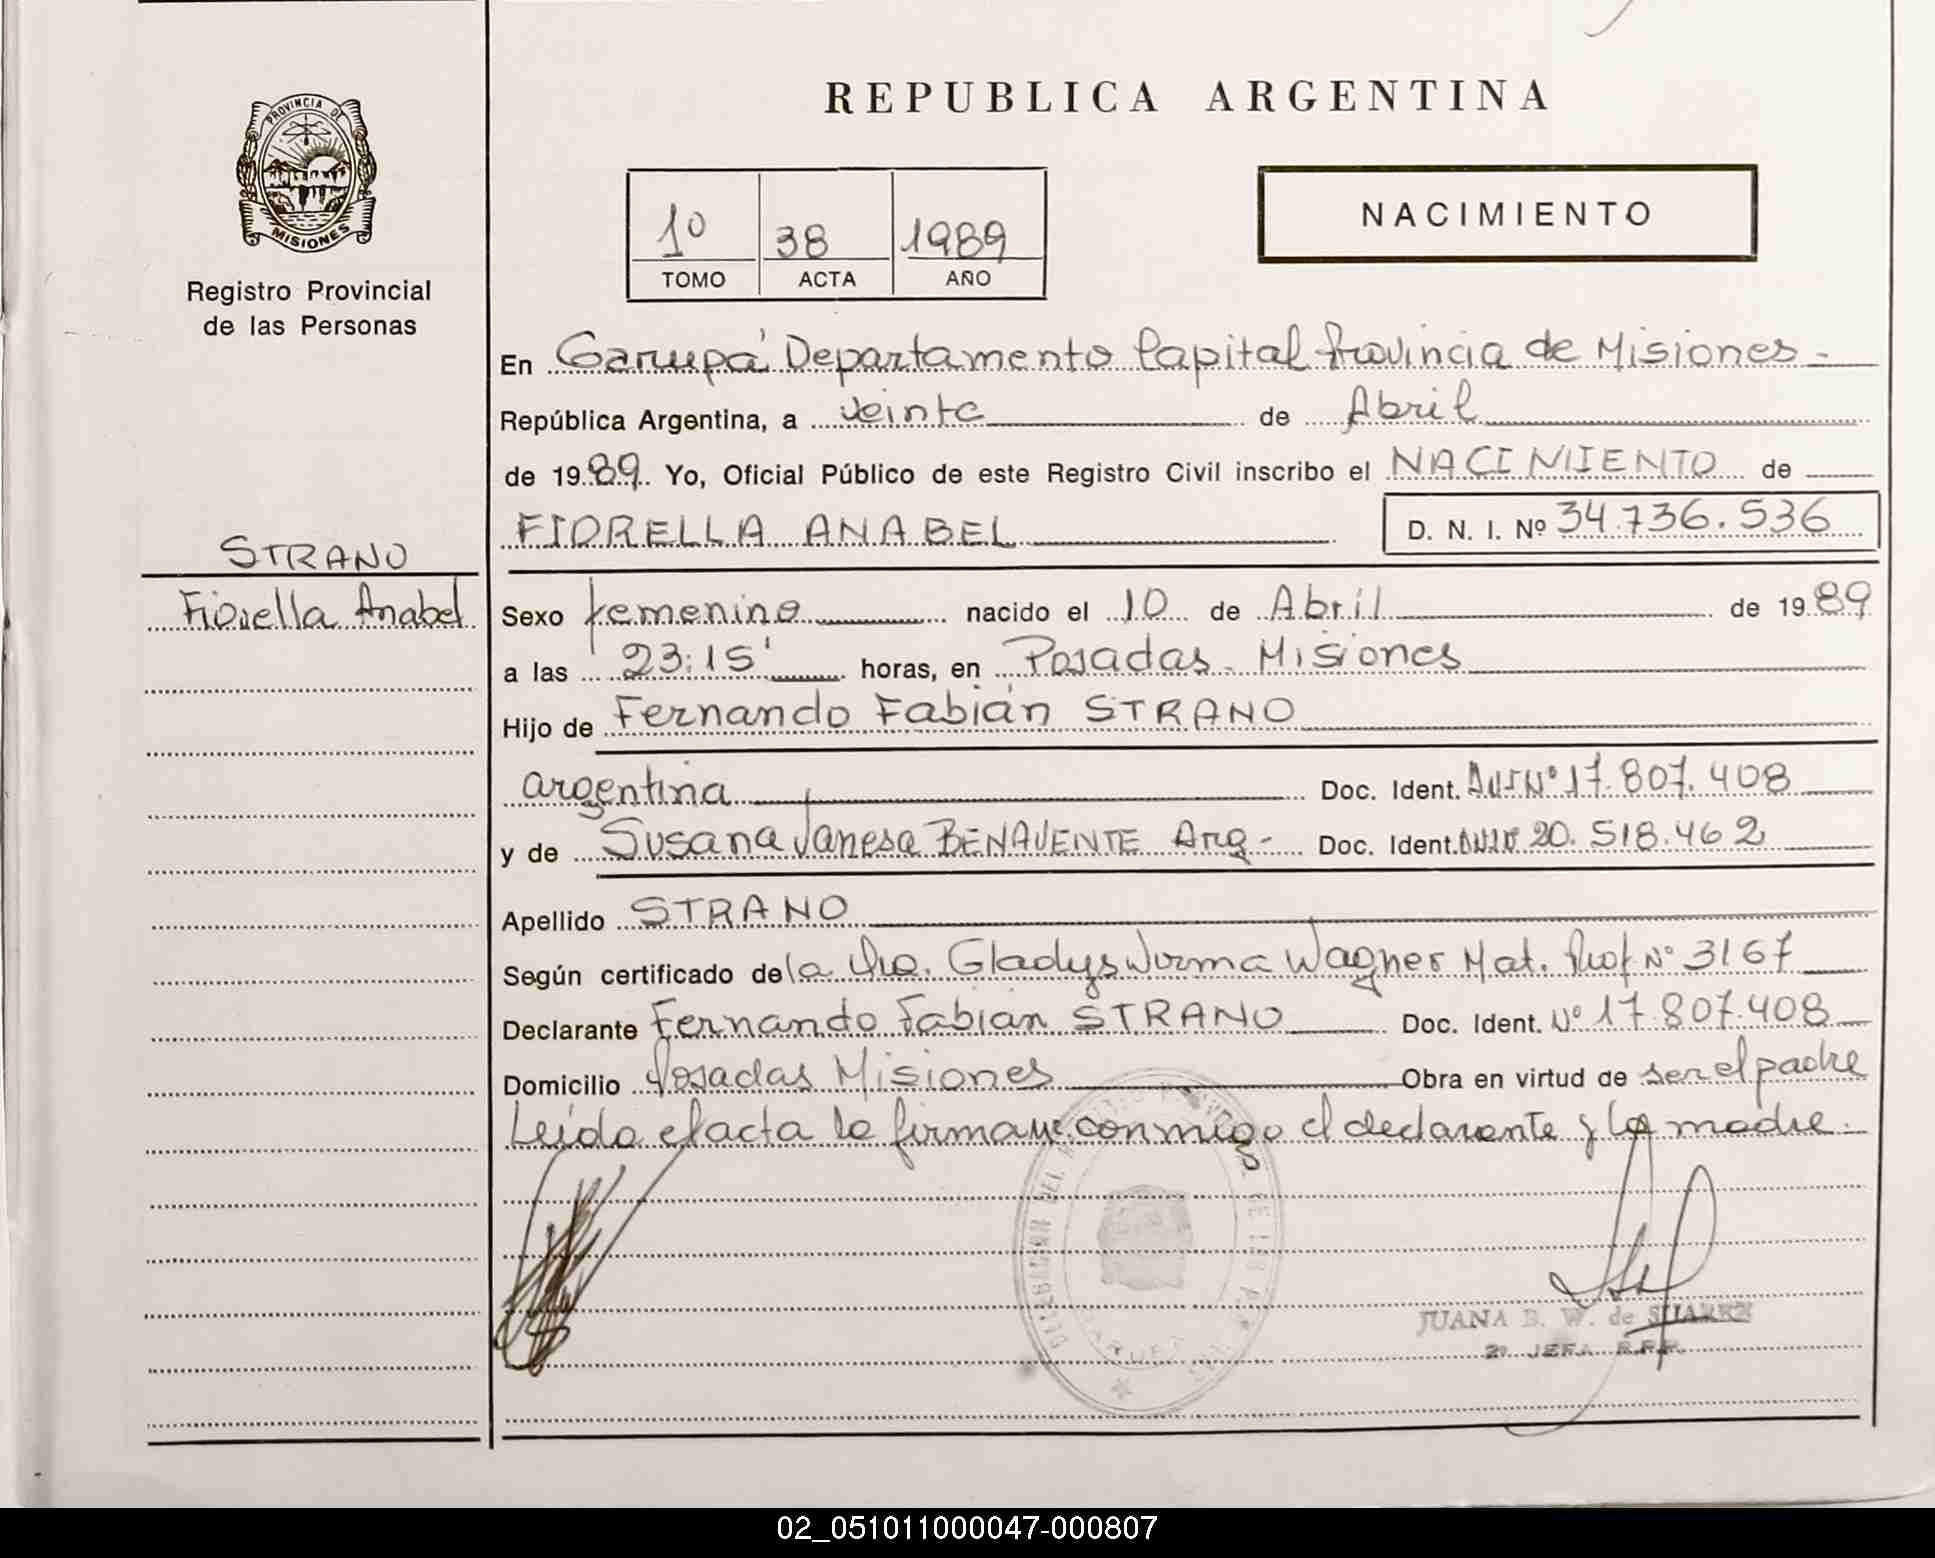 REPUBLICA ARGENTINA
PROVINCIA DE
MISIONES
Registro Provincial
de las Personas
1º 38 1989
TOMO ACTA AÑO
NACIMIENTO
En Garupá Departamento Capital Provincia de Misiones -
República Argentina, a veinte de Abril
de 1989. Yo, Oficial Público de este Registro Civil inscribo el NACIMIENTO de
FIORELLA ANABEL D. N. I. Nº 34.736.536
STRANO
Fiorella Anabel
Sexo femenino nacido el 10 de Abril de 1989
a las 23:15' horas, en Posadas - Misiones
Hijo de Fernando Fabián STRANO
argentina Doc. Ident. DNI Nº 17.807.408
y de Susana Vanesa BENAVENTE Arg - Doc. Ident. DNI Nº 20.518.462
Apellido STRANO
Según certificado de la Dra. Gladys Norma Wagner Mat. Prof Nº 3167
Declarante Fernando Fabian STRANO Doc. Ident. Nº 17.807.408
Domicilio Posadas Misiones Obra en virtud de ser el padre
Leída el acta la firman conmigo el declarante y la madre -
JUANA B. W. de SUAREZ
2º JEFA R.P.P.
02_051011000047-000807